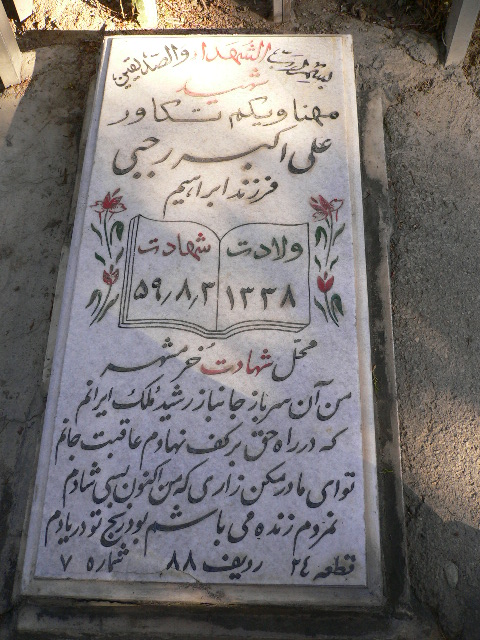 بسم رب الشهداء والصدیقین
شهید
مهناویکم تکاور
علی اکبر رجبی
فرزند ابراهیم
ولادت شهادت
۱۳۳۸ ۵۹٫۸٫۳
محل شهادت خرمشهر
من آن سرباز جانباز رشید ملک ایرانم
که در راه حق بر کف نهادم عاقبت جانم
تو ای مادر مکن زاری که من اکنون بسی شادم
نمردم زنده می باشم بود رنج تو در یادم
قطعه ۲۴ ردیف ۸۸ شماره ۷